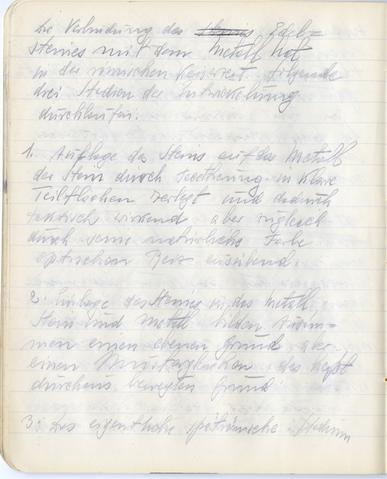 Die Verbindung des Edel=
steines mit dem Metall hat
in der römischen Kaiserzeit folgende
drei Stadien der Entwickelung
durchlaufen:
1. Auflage des Steins auf das Metall
der Stein durch Facettierung in klare
Teilflächen zerlegt und dadurch
wirkend aber zugleich
durch seine natürliche Farbe
optischen Reiz ausübend.
2. Einlage des Steines in das Metall
Stein und Metall bilden zusam-
men einen ebenen Grund oder
einen das heißt
durchaus bewegten Grund
3. Das eigentliche spätrömische Stadium